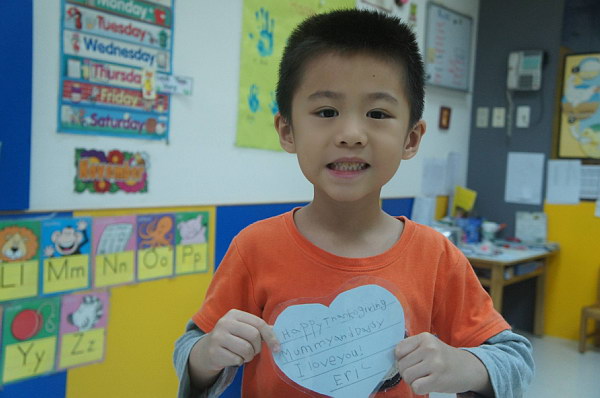 Monday
Tuesday
Wednesday
Thursda
Friday
Saturday
November
Ll Mm Nn Oo Pp
Yy Zz
Happy Thanksgiving
Mummy and Daddy
I love you!
ERIC